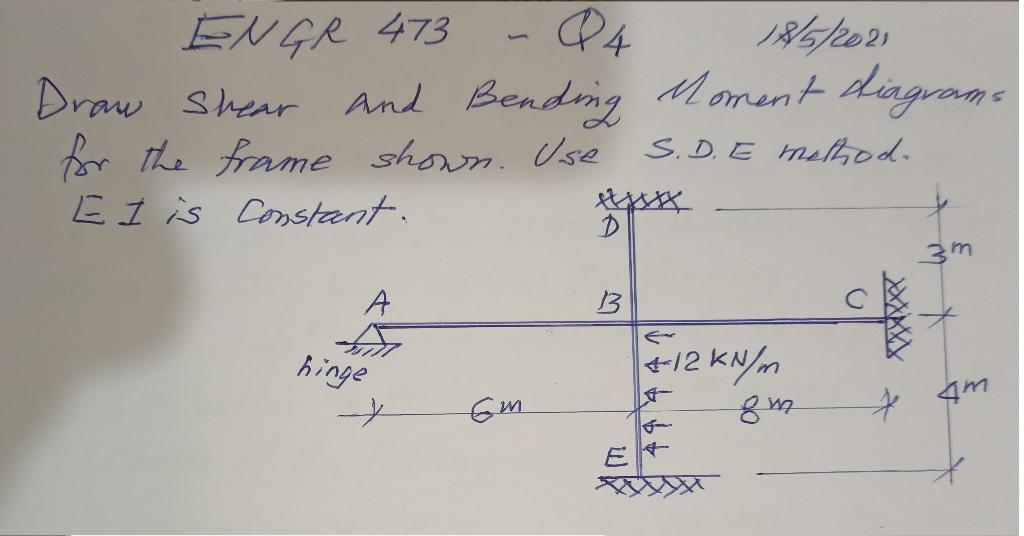 ENGR 473 - Q4 18/5/2021
Draw Shear and Bending Moment diagrams
for the frame shown. Use S.D.E method.
EI is Constant.
D
3m
A B C
hinge
12 KN/m
6m 8m 4m
E